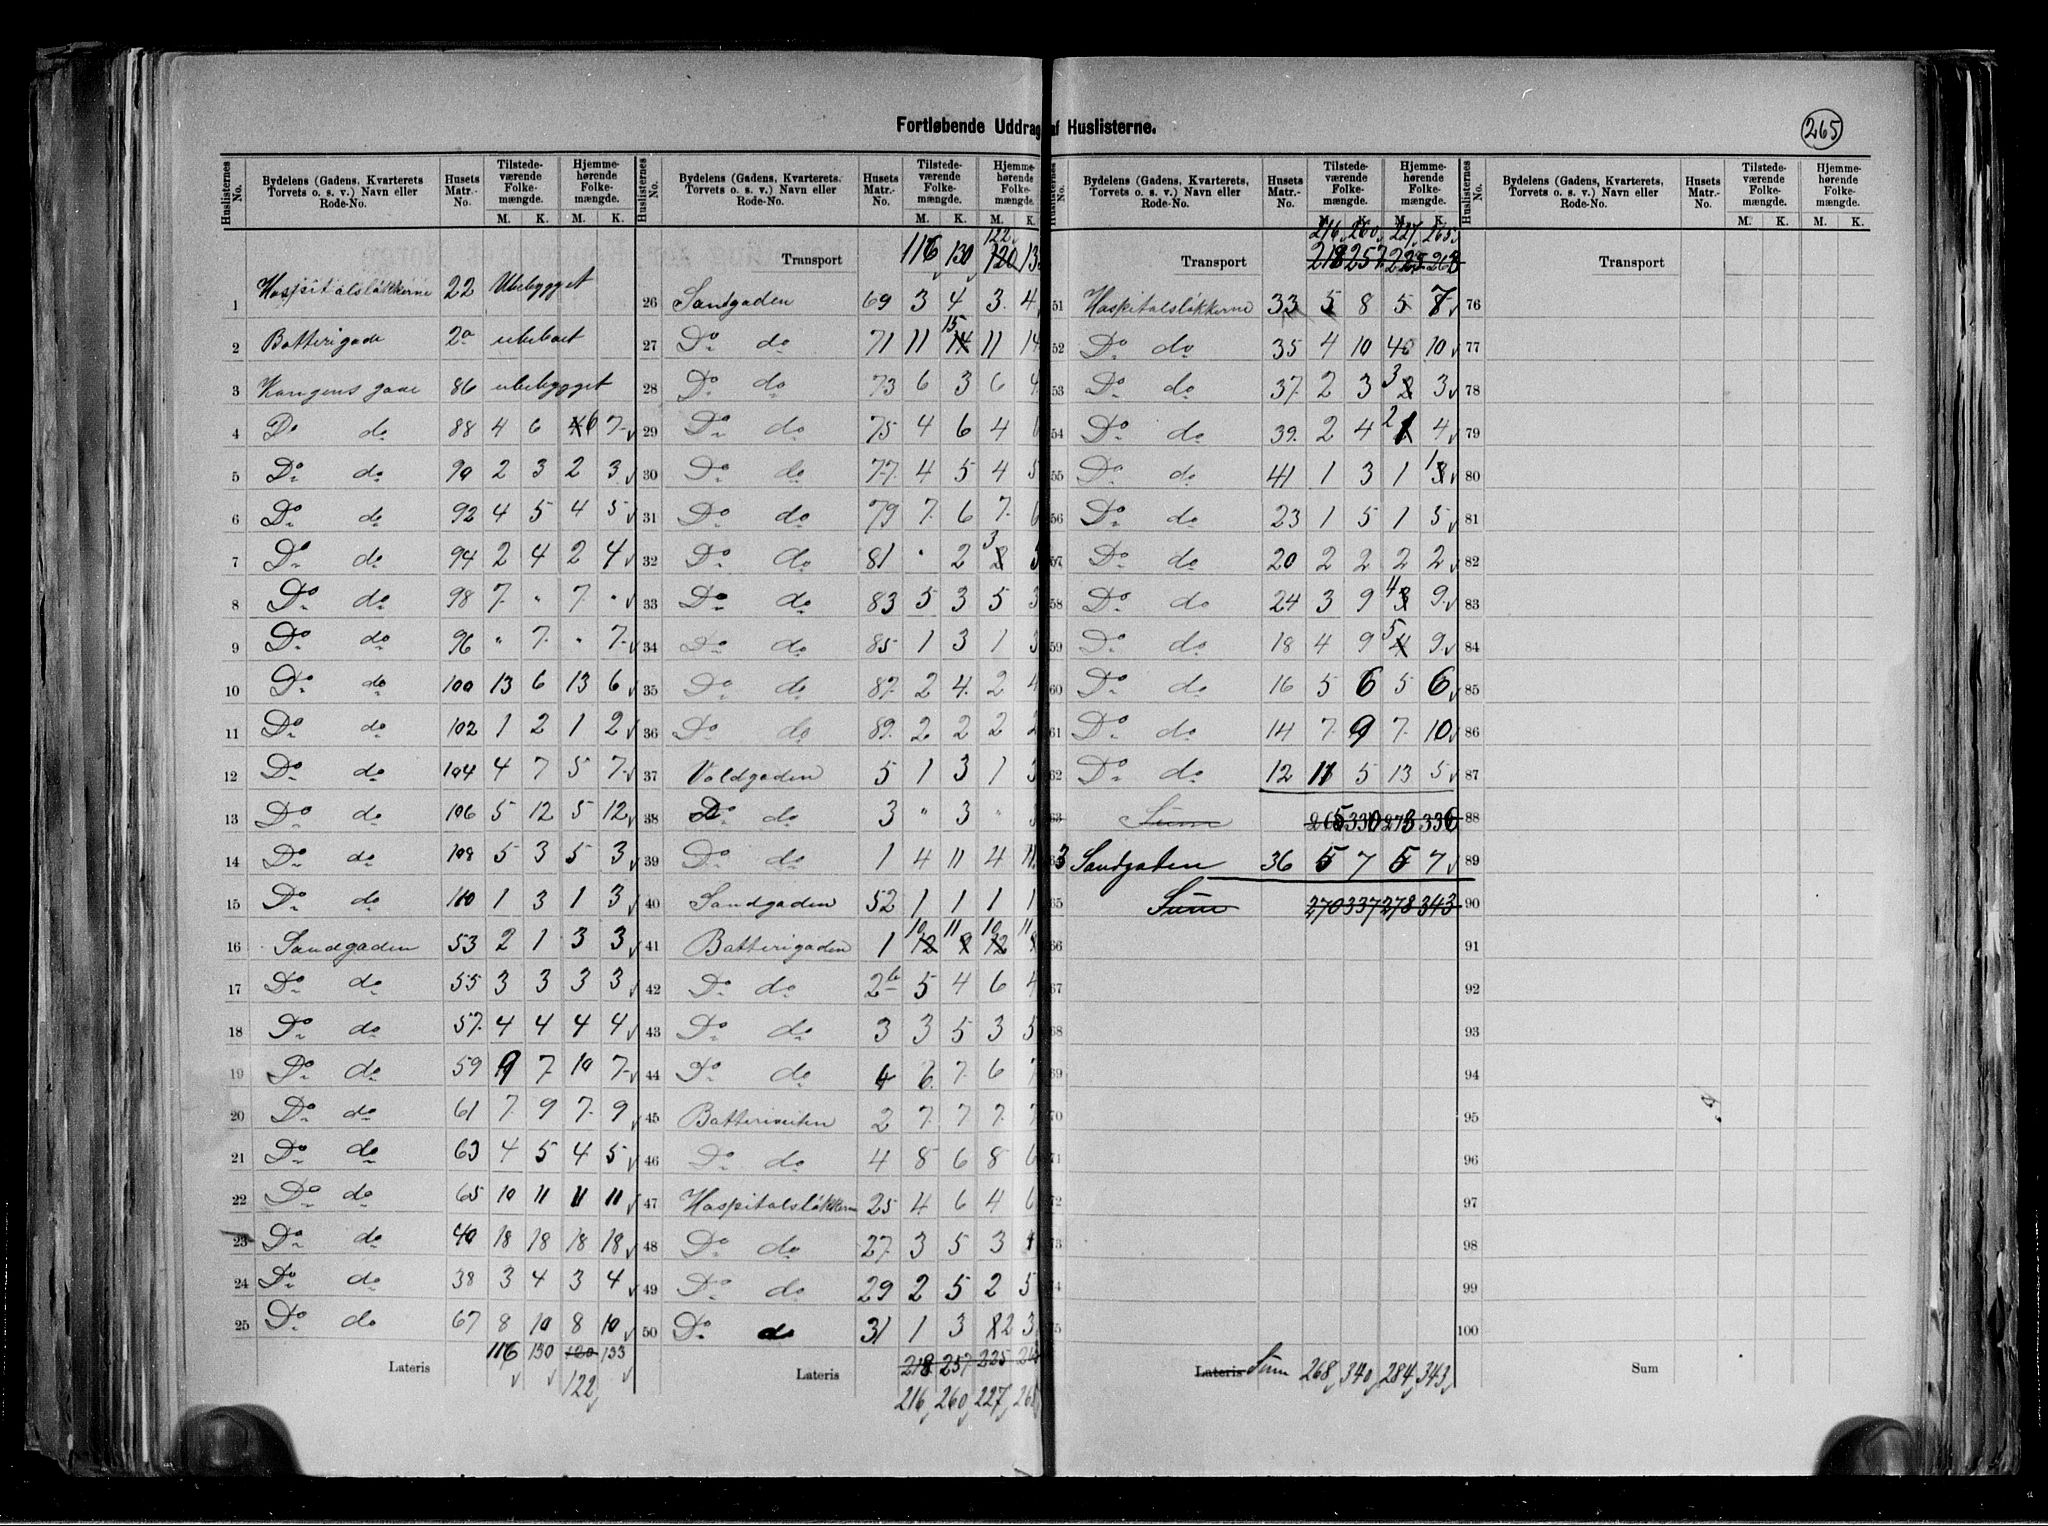 Fortløbende Uddrag af Huslisterne.
265
Huslisternes No. Bydelens (Gadens, Kvarterets, Torvets o. s. v.) Navn eller Rode-No. Husets Matr.-No. Tilstedeværende Folkemængde. M. K. Hjemmehørende Folkemængde. M. K.
1 Hospitalsløkkerne 22 Ubebygget
2 Batterigade 2a ubeboet
3 Kongens gade 86 ubebygget
4 Do do 88 4 6 4 6 7
5 Do do 90 2 3 2 3
6 Do do 92 4 5 4 5
7 Do do 94 2 4 2 4
8 Do do 98 7 " 7 "
9 Do do 96 " 7 " 7
10 Do do 100 13 6 13 6
11 Do do 102 1 2 1 2
12 Do do 104 4 7 5 7
13 Do do 106 5 12 5 12
14 Do do 108 5 3 5 3
15 Do do 110 1 3 1 3
16 Sandgaden 53 2 1 3 3
17 Do do 55 3 3 3 3
18 Do do 57 4 4 4 4
19 Do do 59 9 7 10 7
20 Do do 61 7 9 7 9
21 Do do 63 4 5 4 5
22 Do do 65 10 11 11 11
23 Do do 40 18 18 18 18
24 Do do 38 3 4 3 4
25 Do do 67 8 10 8 10
Lateris 116 130 120 133
122
Huslisternes No. Bydelens (Gadens, Kvarterets, Torvets o. s. v.) Navn eller Rode-No. Husets Matr.-No. Tilstedeværende Folkemængde. M. K. Hjemmehørende Folkemængde. M. K.
122
Transport 116 130 120 13
26 Sandgaden 69 3 4 3 4
27 Do do 71 11 15 14 11 14
28 Do do 73 6 3 6 4
29 Do do 75 4 6 4
30 Do do 77 4 5 4 5
31 Do do 79 7 6 7 6
32 Do do 81 " 2 3 2
33 Do do 83 5 3 5 3
34 Do do 85 1 3 1 3
35 Do do 87 2 4 2 4
36 Do do 89 2 2 2 2
37 Voldgaden 5 1 3 1 3
38 Do do 3 " 3 " 3
39 Do do 1 4 11 4 11
40 Sandgaden 52 1 1 1 1
41 Batterigaden 1 10 12 11 9 10 12 11
42 Do do 2b 5 4 6 4
43 Do do 3 3 5 3 5
44 Do do 4 6 7 6 7
45 Batteriveiten 2 7 7 7 7
46 Do do 4 8 6 8 6
47 Hospitalsløkkerne 25 4 6 4 6
48 Do do 27 3 5 3
49 Do do 29 2 5 2 5
50 Do do 31 1 3 2 3
Lateris 218 257 225
216 260 227
Huslisternes No. Bydelens (Gadens, Kvarterets, Torvets o. s. v.) Navn eller Rode-No. Husets Matr.-No. Tilstedeværende Folkemængde. M. K. Hjemmehørende Folkemængde. M. K.
216 260 227 265
Transport 218 257 225 263
51 Hospitalsløkkerne 33 5 8 5 8
52 Do do 35 4 10 4 10
53 Do do 37 2 3 3 2 3
54 Do do 39 2 4 2 1 4
55 Do do 41 1 3 1 1 3
56 Do do 23 1 5 1 5
57 Do do 20 2 2 2 2
58 Do do 24 3 9 4 3 9
59 Do do 18 4 9 5 4 9
60 Do do 16 5 6 5 6
61 Do do 14 7 9 7 10
62 Do do 12 11 5 13 5
63 Sum 265 330 273 336
3 Sandgaden 36 5 7 5 7
65 Sum 270 337 278 343
66
67
68
69
70
71
72
73
74
75
Lateris Sum 268 340 284 343
Huslisternes No. Bydelens (Gadens, Kvarterets, Torvets o. s. v.) Navn eller Rode-No. Husets Matr.-No. Tilstedeværende Folkemængde. M. K. Hjemmehørende Folkemængde. M. K.
Transport
76
77
78
79
80
81
82
83
84
85
86
87
88
89
90
91
92
93
94
95
96
97
98
99
100
Sum